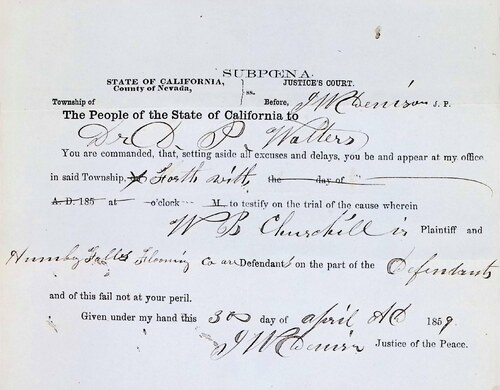 SUBPŒNA.
STATE OF CALIFORNIA, } ss. JUSTICE'S COURT.
County of Nevada,
Township of Before, J W Denison J. P.
The People of the State of California to
Dr D. P Walters
You are commanded, that, setting aside all excuses and delays, you be and appear at my office
in said Township, Forth with the day of
A. D. 185 at o'clock M. to testify on the trial of the cause wherein
W B Churchill is Plaintiff and
Falls Co are Defendants on the part of the Defendants
and of this fail not at your peril.
Given under my hand this 30 day of April AD 1859.
J W Denison Justice of the Peace.